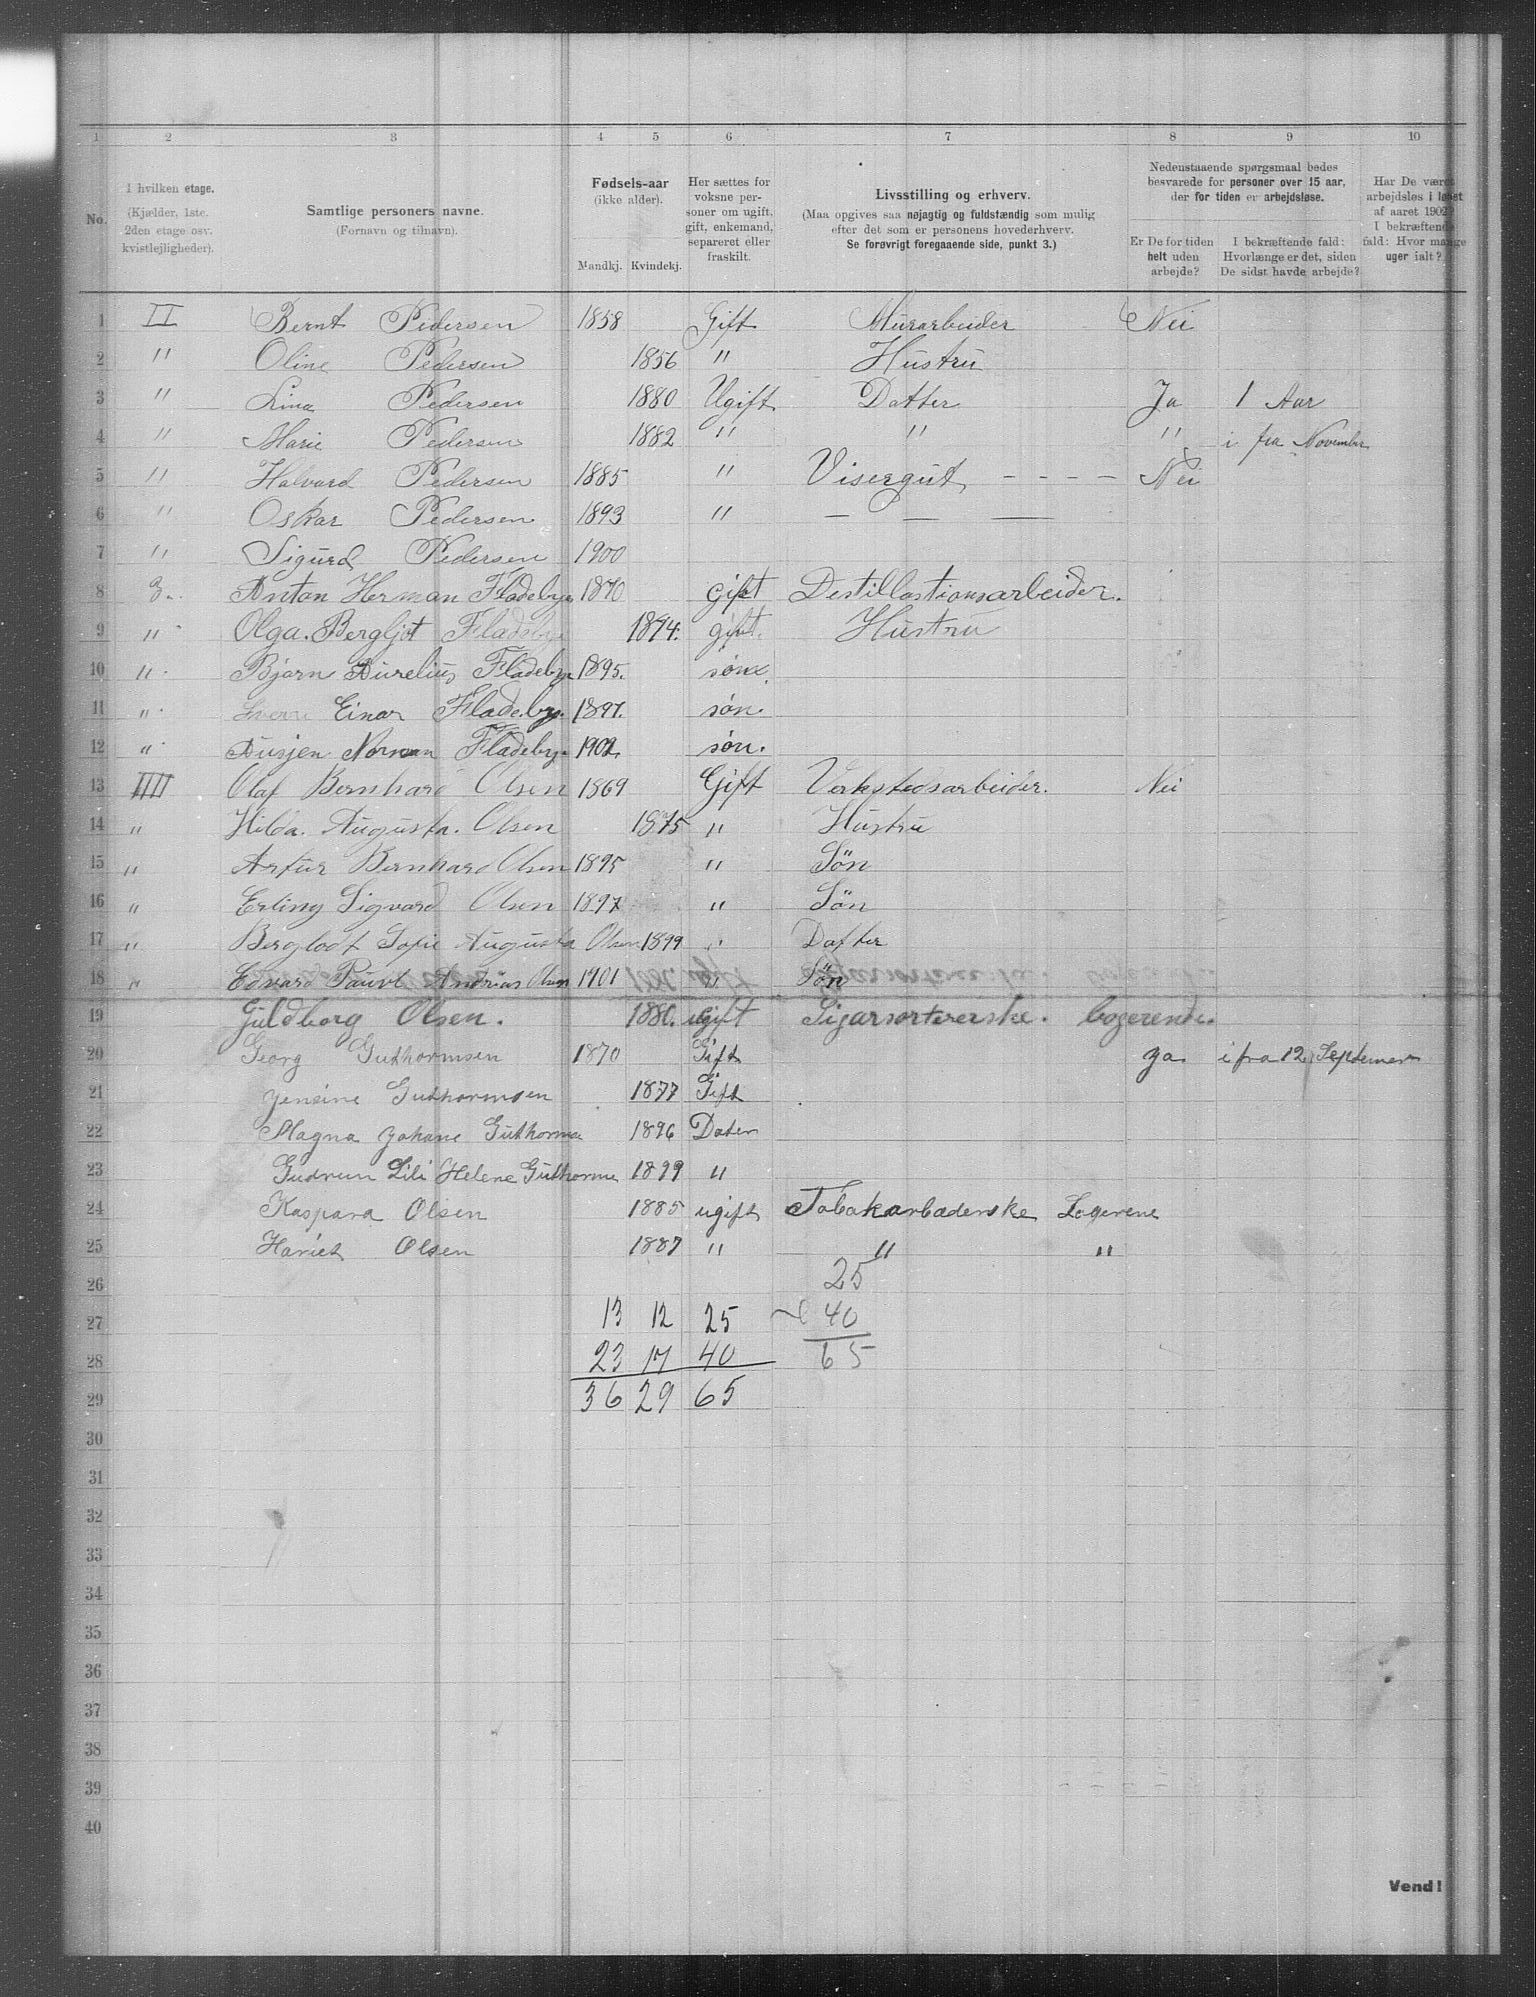 1 2 3 4 5 6 7 8 9 10
No.
I hvilken etage.
(Kjælder, 1ste.
2den etage osv.
kvistlejligheder).
Samtlige personers navne.
(Fornavn og tilnavn).
Fødsels-aar
(ikke alder).
Mandkj. Kvindekj.
Her sættes for
voksne per-
soner om ugift,
gift, enkemand,
separeret eller
fraskilt.
Livsstilling og erhverv.
(Maa opgives saa nøjagtig og fuldstændig som mulig
efter det som er personens hovederhverv.
Se forøvrigt foregaaende side, punkt 3.)
Nedenstaaende spørgsmaal bedes
besvarede for personer over 15 aar,
der for tiden er arbejdsløse.
Er De for tiden
helt uden
arbejde?
I bekræftende fald:
Hvorlænge er det, siden
De sidst havde arbejde?
Har De været
arbejdsløs i løbet
af aaret 1902?
I bekræftende
fald: Hvor mange
uger ialt?
1 II Bernt Pedersen 1858 Gift Murarbeider Nei
2 " Oline Pedersen 1856 " Hustru
3 " Lina Pedersen 1880 Ugift Datter Ja 1 Aar
4 " Marie Pedersen 1882 " " " i fra November
5 " Halvard Pedersen 1885 " Visergut - - - - Nei
6 " Oskar Pedersen 1893 " — — —
7 " Sigurd Pedersen 1900
8 3. Anton Herman Fladebye 1870 gift Destillastionsarbeider.
9 " Olga. Bergljot Fladebye 1874. gift. Hustru
10 " Bjarn Aurelius Fladebye 1895. søn.
11 " Sverre Einar Fladebye. 1897. søn.
12 " Norman Fladebye 1902. søn.
13 IIII Olaf Bernhard Olsen 1869 Gift Verkstedsarbeider. Nei
14 " Hilda. Augusta. Olsen 1875 " Hustru
15 " Artur Bernhard Olsen 1895 " Søn
16 " Erling Sigvard Olsen 1897 " Søn
17 " Berglodt Sofie Augusta Olsen 1899 " Datter
18 " Edvard Pauvl Andrias Olsen 1901 " Søn
19 Guldborg Olsen. 1880. ugift Sigarsortererske. logerende.
20 Georg Guthormsen 1870 Gift ja i fra 12 Septemer
21 Jensine Guthormsen 1877 Gift
22 Magna Johane Guthorms 1896 Dater
23 Gudrun Lili Helene Guthorms 1899 "
24 Kaspara Olsen 1885 ugift Tobakarbaderske Logerene
25 Hariet Olsen 1887 " " "
26 25
27 13 12 25 40
28 23 17 40 65
29 36 29 65
30
31
32
33
34
35
36
37
38
39
40
Vend!